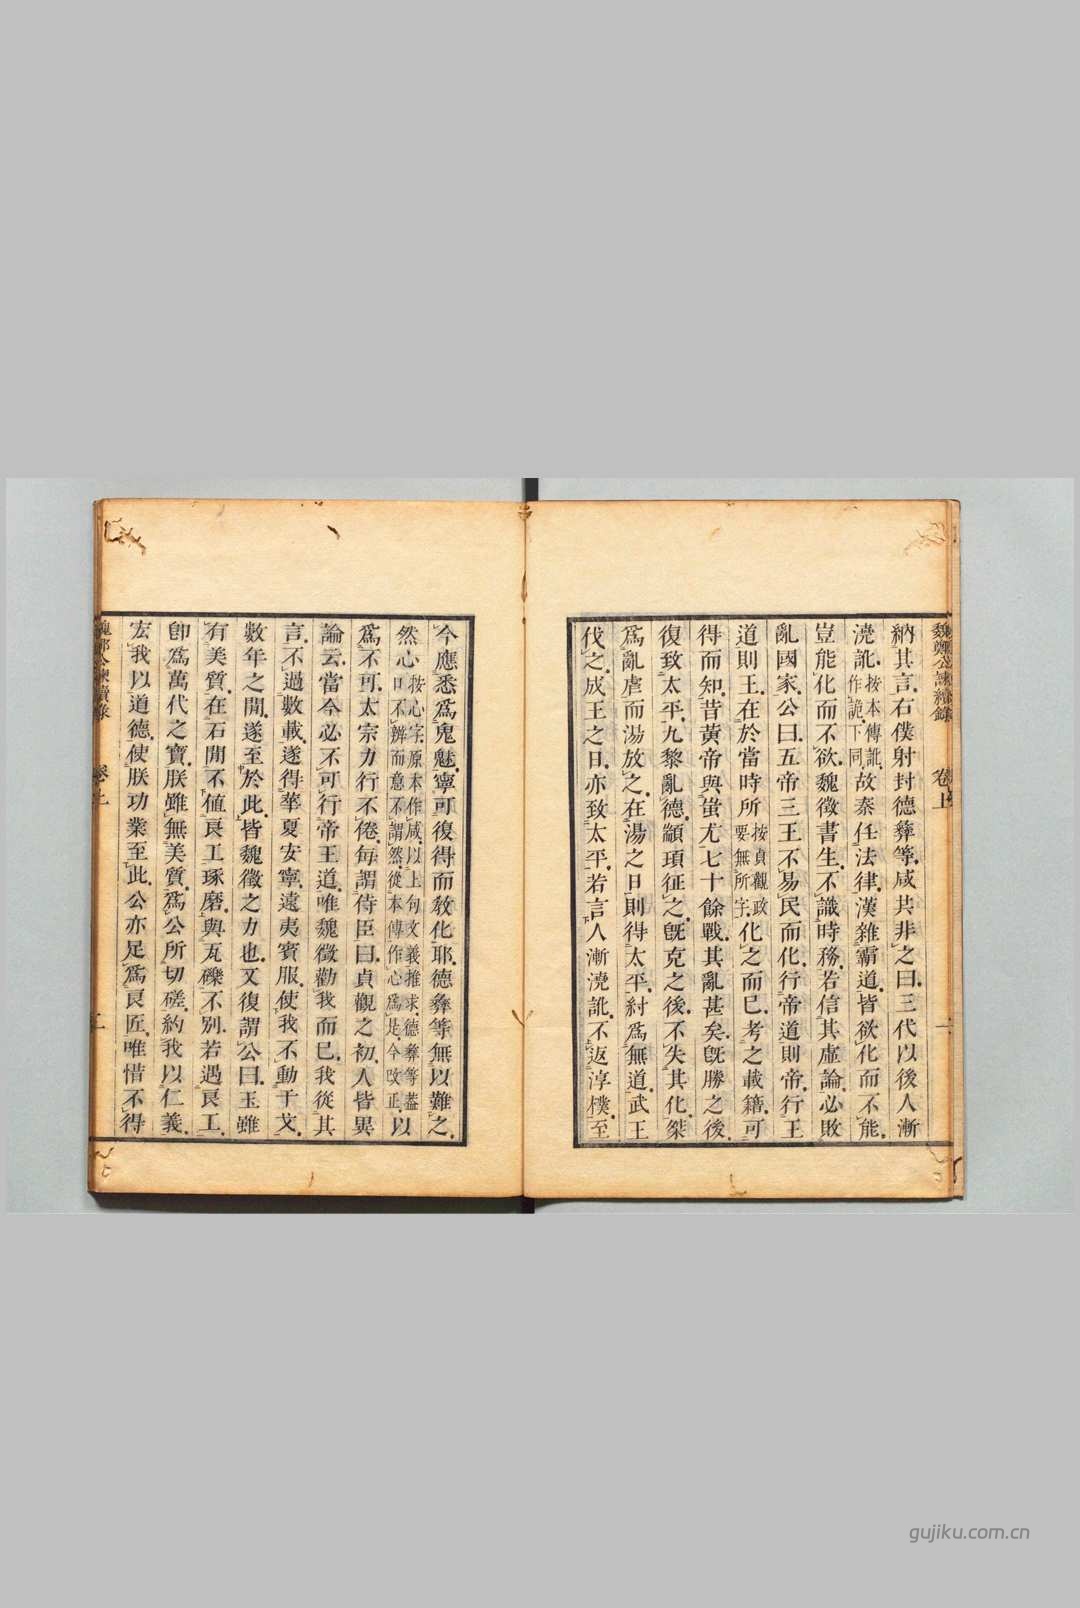 魏鄭公諫續錄 卷上 一
納其言右僕射封德彝等咸共非之曰三代以後人漸
澆訛按本傳訛作詭下同故秦任法律漢雜霸道皆欲化而不能
豈能化而不欲魏徵書生不識時務若信其虛論必敗
亂國家公曰五帝三王不易民而化行帝道則帝行王
道則王在於當時所按貞觀政要無所字化之而已考之載籍可
得而知昔黃帝與蚩尤七十餘戰其亂甚矣旣勝之後
復致太平九黎亂德顓頊征之旣克之後不失其化桀
爲亂虐而湯放之在湯之日則得太平紂爲無道武王
伐之成王之日亦致太平若言人漸澆訛不返淳樸至
今應悉爲鬼魅寧可復得而敎化耶德彝等無以難之
然心按心字原本作咸以上句文義推求德彝等蓋口不辨而意不謂然從本傳作心爲是今改正以
爲不可太宗力行不倦每謂侍臣曰貞觀之初人皆異
論云當今必不可行帝王道唯魏徵勸我而已我從其
言不過數載遂得華夏安寧遠夷賓服使我不動干戈
數年之閒遂至於此皆魏徵之力也又復謂公曰玉雖
有美質在石閒不値良工琢磨與瓦礫不別若遇良工
卽爲萬代之寶朕雖無美質爲公所切磋約我以仁義
宏我以道德使朕功業至此公亦足爲良匠唯惜不得
魏鄭公諫續錄 卷上 二
gujiku.com.cn